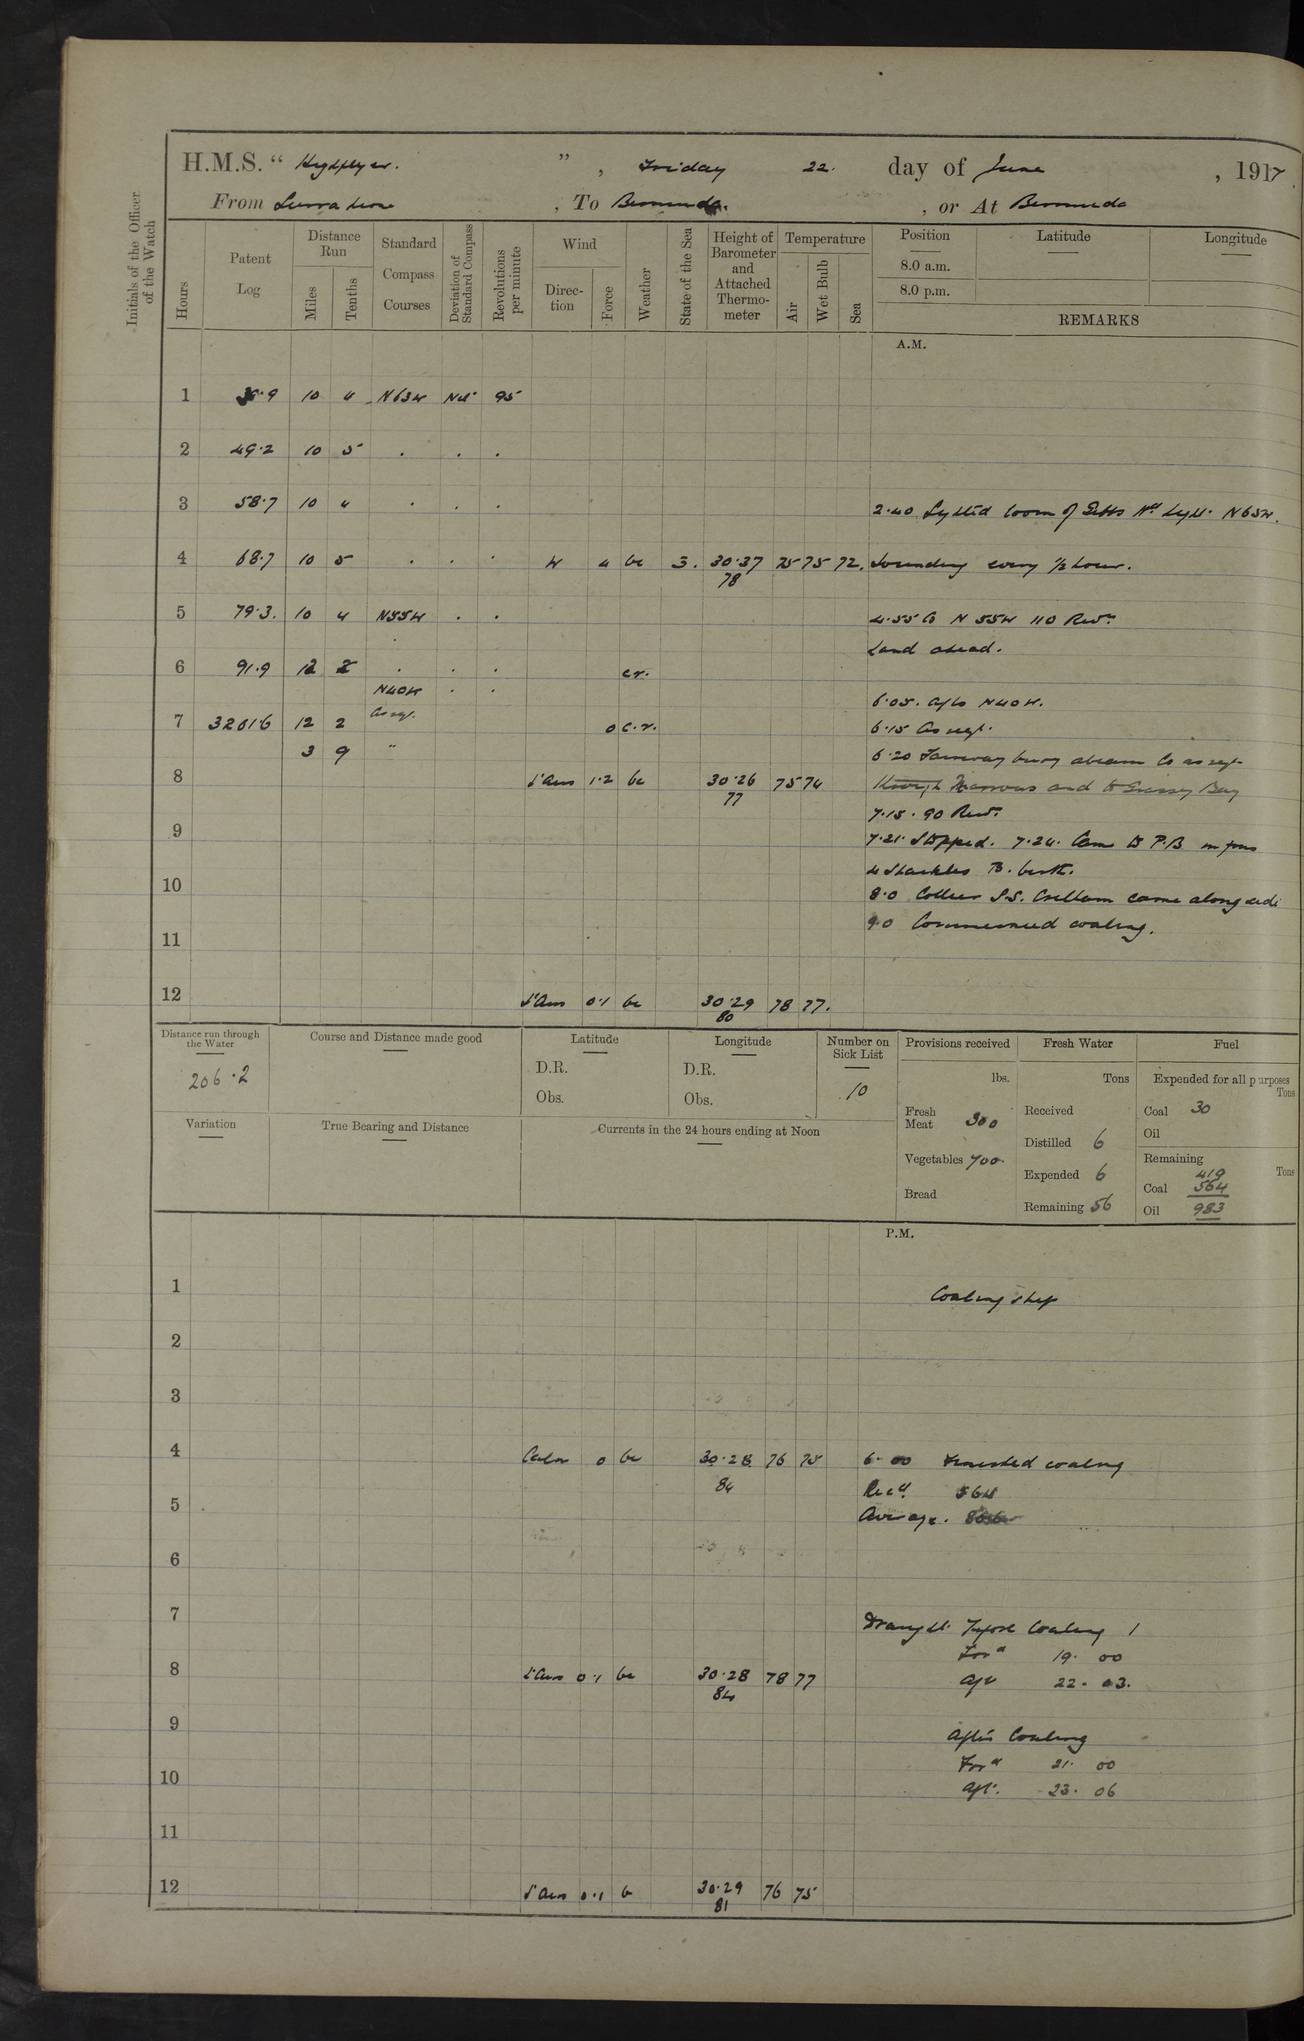 H.M.S. “ Highflyer. ” , Friday 22. day of June , 1917.
From Sierra Leone , To Bermuda. , or At Bermuda
Initials of the Officer of the Watch
Hours
Patent Log
Distance Run
Miles
Tenths
Standard Compass Courses
Deviation of Standard Compass
Revolutions per minute
Wind
Direction
Force
Weather
State of the Sea
Height of Barometer and Attached Thermometer
Temperature
Air
Wet Bulb
Sea
Position Latitude Longitude
8.0 a.m.
8.0 p.m.
REMARKS
A.M.
1 38·9 10 4 N63W Nil 95
2 49·2 10 5 . . .
3 58·7 10 4 . . .
2·40 Sighted loom of Gibbs Hill Light. N65W.
4 68·7 10 5 . . . W 4 bc 3. 30·37 75 75 72. Sounding every 1/2 hour.
78
5 79·3. 10 4 N55W . . 4·55 Co N 55W 110 Revs
Land ahead.
6 91·9 12 2 . . . cr.
N40W . .
6·05. A/Co N40W.
7 3201·6 12 2 As req. o c.r. 6·15 As req.
3 9 "
6·20 Fairway buoy abeam Co as req.
8 L'Airs 1·2 bc 30·26 75 74 through Narrows and to Grassy Bay
77
7·15. 90 Revs
9
7·21. Stopped. 7·24. Came to P.B.
4 Shackles B. berth.
10
8·0 Collier S.S. came alongside
9·0 Commenced coaling.
11
12 L'Airs 0·1 bc 30·29 78 77.
80
Distance run through the Water
206·2
Course and Distance made good
Latitude
D.R.
Obs.
Longitude
D.R.
Obs.
Number on Sick List
10
Provisions received
lbs.
Fresh Meat 300
Vegetables 700.
Bread
Fresh Water
Tons
Received
Distilled 6
Expended 6
Remaining 56
Fuel
Expended for all purposes
Tons
Coal 30
Oil
Remaining
Tons
419
Coal 564
Oil 983
Variation
True Bearing and Distance
Currents in the 24 hours ending at Noon
P.M.
1
Coaling ship
2
3
4 Calm 0 bc 30·28 76 75 6·00 Finished coaling
84
Recd. 564
5
Average.
6
7
Draught. Before Coaling
Ford 19. 00
8 L'Airs 0·1 bc 30·28 78 77
84
Aft 22. 03.
9
After Coaling
Ford 21. 00
10
Aft. 23. 06
11
12 L'Airs 0·1 b 30·29 76 75
81